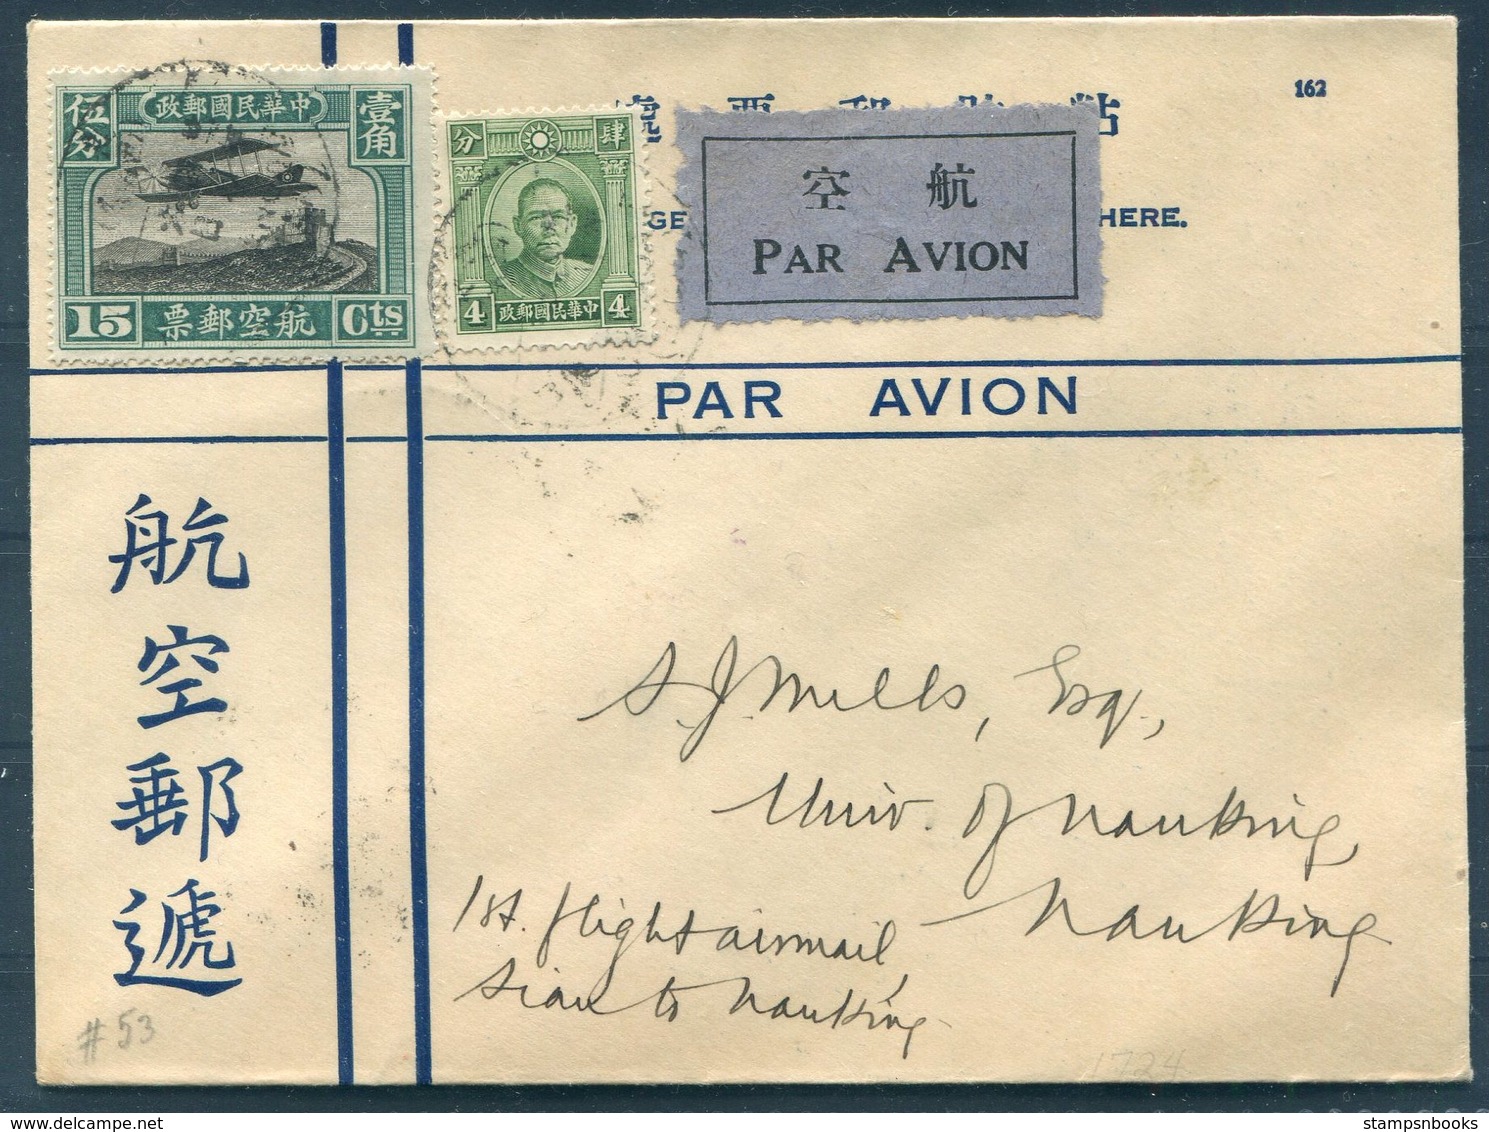 162
處票郵貼
GE HERE.
伍分 中華民國郵政 壹角
15 航空郵票 Cts
分 肆
4 中華民國郵政 4
航空
PAR AVION
PAR AVION
航空郵遞
S. J. Mills, Esq.,
Univ. of Nanking,
Nanking
1st. flight airmail,
Sian to Nanking
#53
1724
www.delcampe.net
stampsnbooks